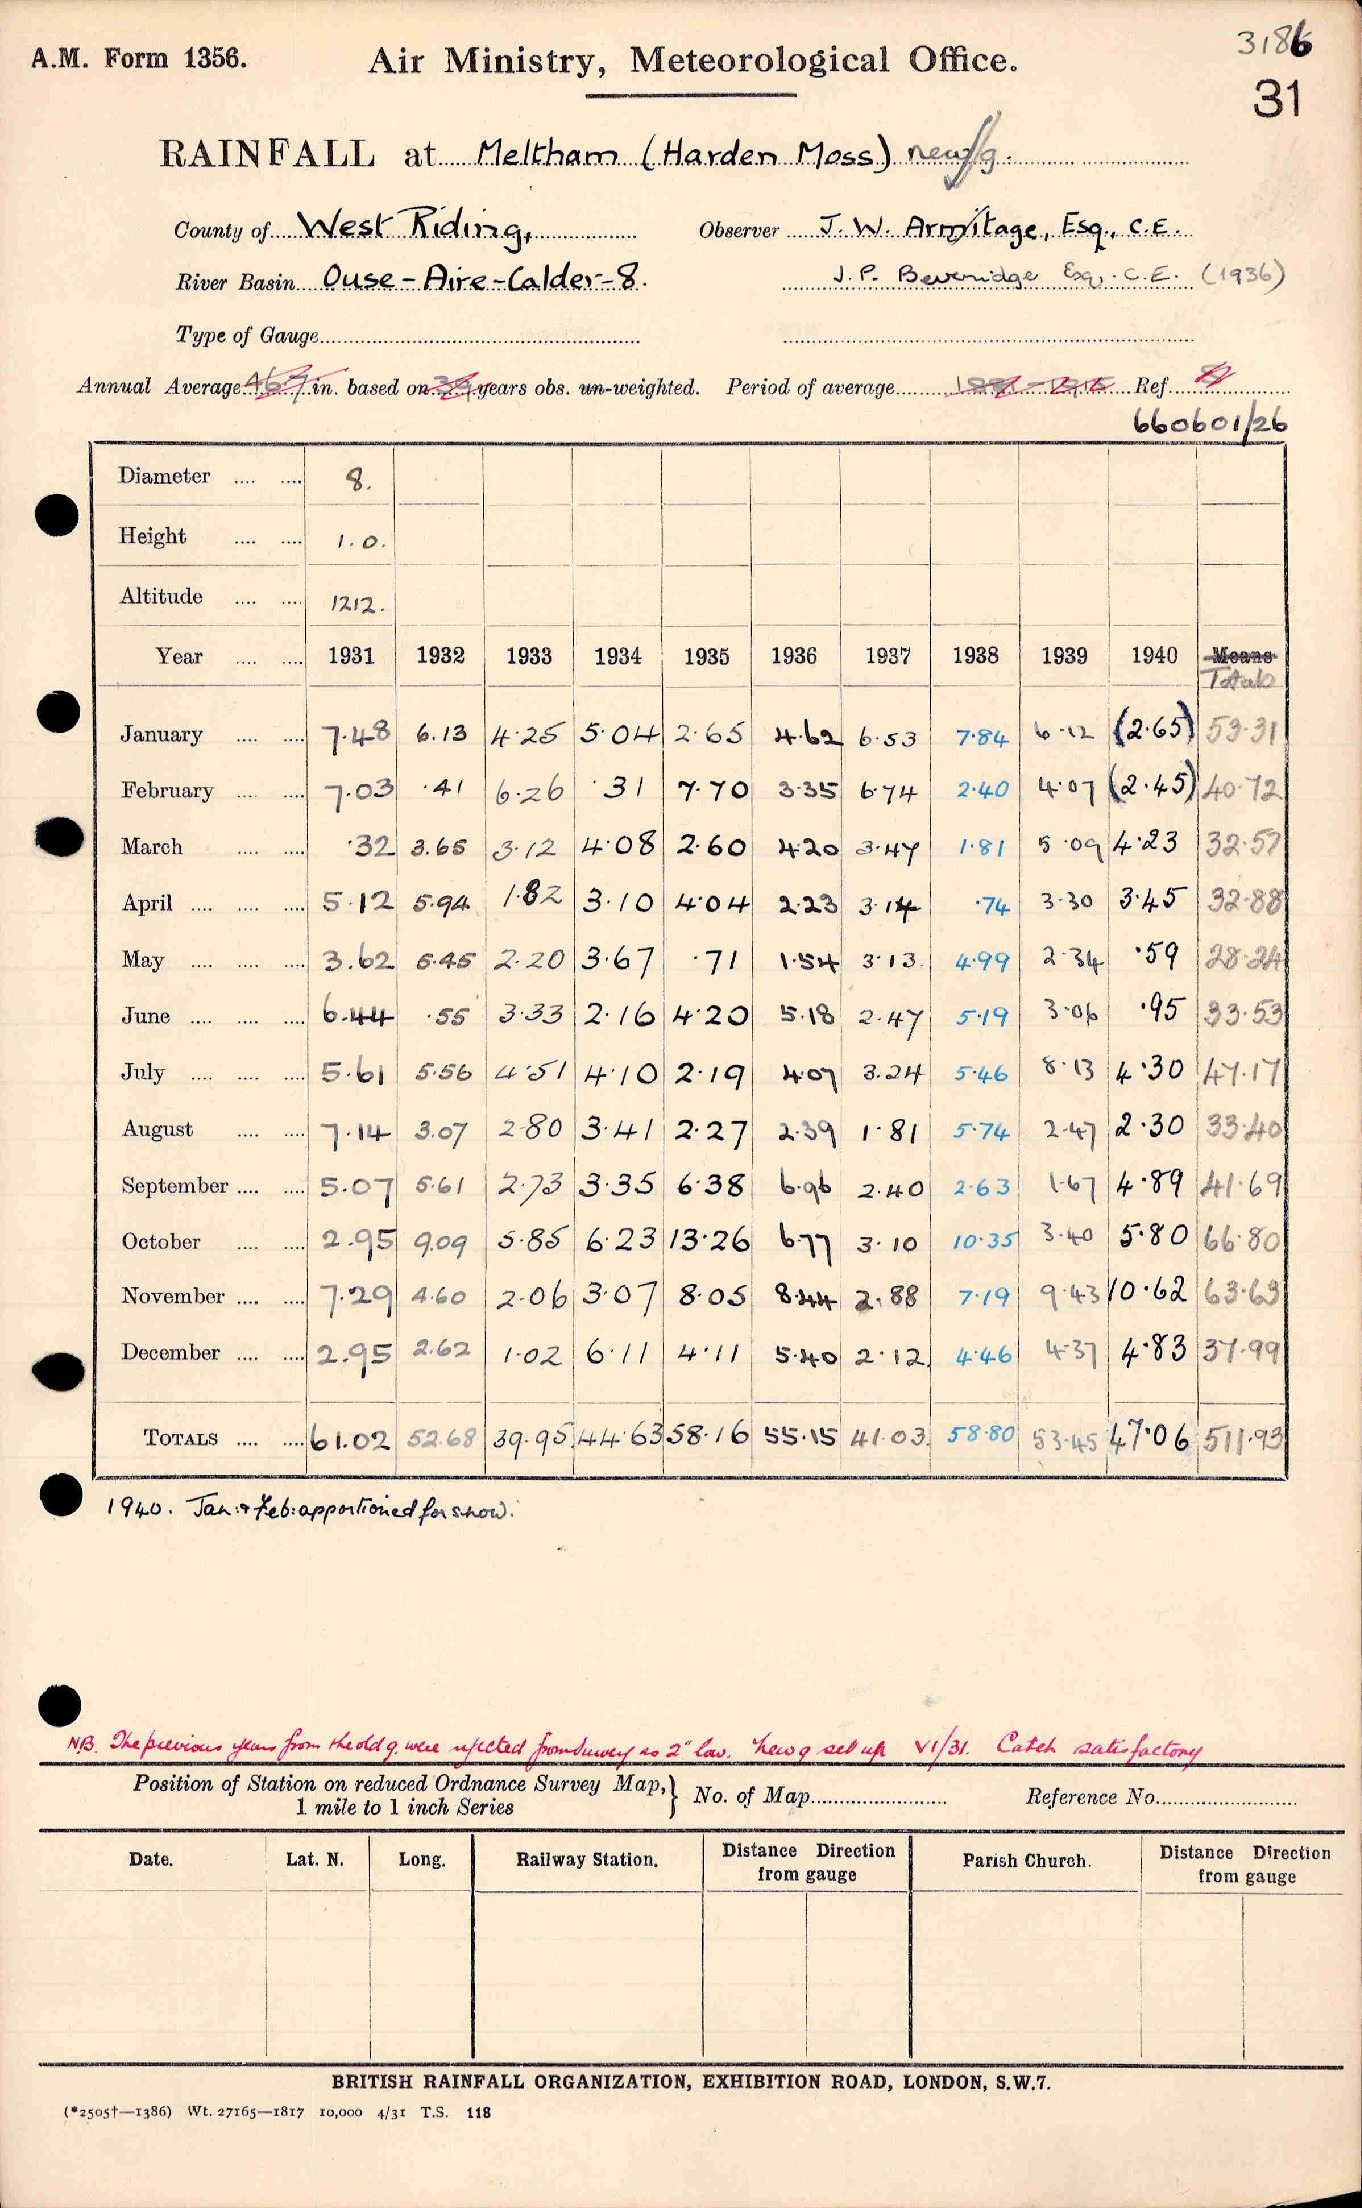 3186
A.M. Form 1356. Air Ministry, Meteorological Office.
31
RAINFALL at Meltham (Harden Moss) new g.
County of West Riding, Observer J. W. Armitage, Esq., C.E.
River Basin Ouse-Aire-Calder-8. J. P. Beveridge Esq. C.E. (1936)
Type of Gauge
Annual Average 46.7 in. based on 39 years obs. un-weighted. Period of average Ref.
660601/26
Diameter 8.
Height 1.0.
Altitude 1212.
Year 1931 1932 1933 1934 1935 1936 1937 1938 1939 1940 Means Totals
January 7.48 6.13 4.25 5.04 2.65 4.62 6.53 7.84 6.12 (2.65) 53.31
February 7.03 .41 6.26 .31 7.70 3.35 6.74 2.40 4.07 (2.45) 40.72
March .32 3.65 3.12 4.08 2.60 4.20 3.47 1.81 5.09 4.23 32.57
April 5.12 5.94 1.82 3.10 4.04 2.23 3.14 .74 3.30 3.45 32.88
May 3.62 5.45 2.20 3.67 .71 1.54 3.13 4.99 2.34 .59 28.24
June 6.44 .55 3.33 2.16 4.20 5.18 2.47 5.19 3.06 .95 33.53
July 5.61 5.56 4.51 4.10 2.19 4.07 3.24 5.46 8.13 4.30 47.17
August 7.14 3.07 2.80 3.41 2.27 2.39 1.81 5.74 2.47 2.30 33.40
September 5.07 5.61 2.73 3.35 6.38 6.96 2.40 2.63 1.67 4.89 41.69
October 2.95 9.09 5.85 6.23 13.26 6.77 3.10 10.35 3.40 5.80 66.80
November 7.29 4.60 2.06 3.07 8.05 8.44 2.88 7.19 9.43 10.62 63.63
December 2.95 2.62 1.02 6.11 4.11 5.40 2.12 4.46 4.37 4.83 37.99
TOTALS 61.02 52.68 39.95 44.63 58.16 55.15 41.03 58.80 53.45 47.06 511.93
1940. Jan: & Feb: apportioned for snow.
N.B. The previous years from the old g. were rejected from Survey as 2" low. New g set up VI/31. Catch satisfactory
Position of Station on reduced Ordnance Survey Map, 1 mile to 1 inch Series } No. of Map Reference No.
Date. Lat. N. Long. Railway Station. Distance Direction from gauge Parish Church. Distance Direction from gauge
BRITISH RAINFALL ORGANIZATION, EXHIBITION ROAD, LONDON, S.W.7.
(*2505†—1386) Wt. 27165—1817 10,000 4/31 T.S. 118